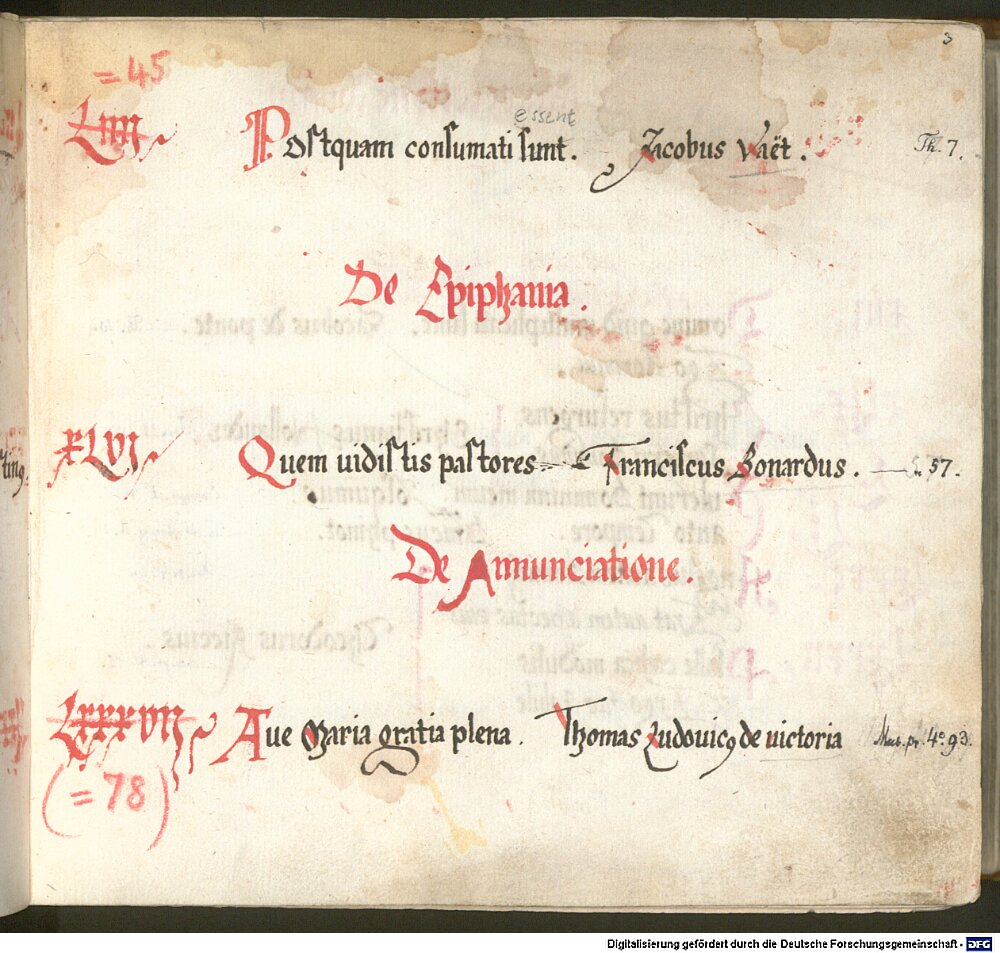 3
= 45
essent
Postquam consumati sunt. Jacobus Vaët. Th. 7.
De Epiphania.
XLVI Quem uidistis pastores Franciscus Bonardus. 57.
De Annunciatione.
LXXXVII Aue Maria gratia plena. Thomas Ludouicꝯ de uictoria Mus. pr. 4º 93.
(= 78)
Digitalisierung gefördert durch die Deutsche Forschungsgemeinschaft - DFG